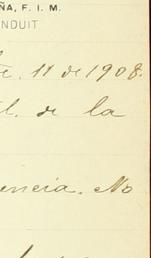 ÑA, F. I. M.
NDUIT
11 de 1908.
de la
encia. No